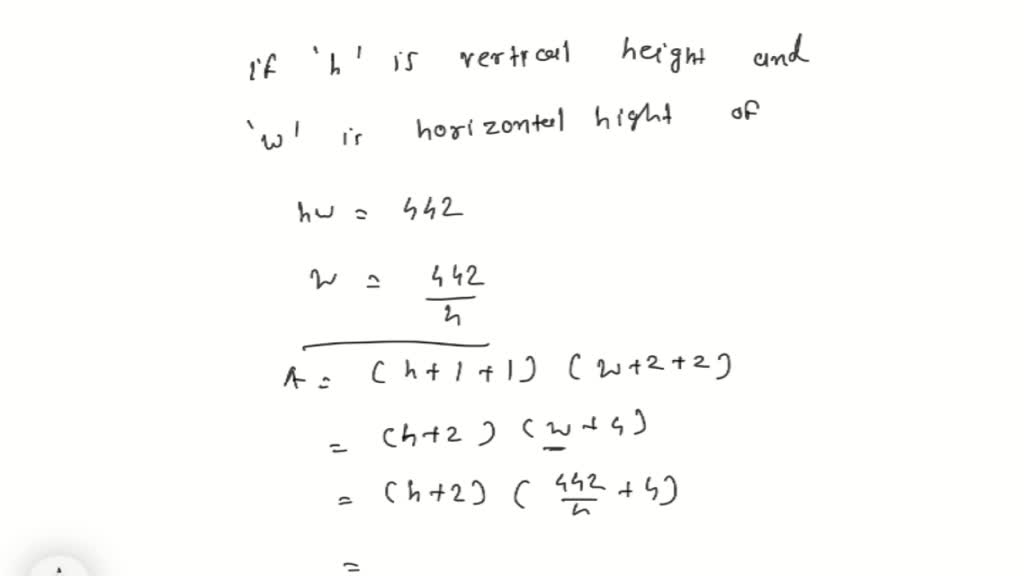 If 'h' is vertical height and
'w' is horizontal hight of
hw = 442
w = 442/h
A = (h+1+1) (w+2+2)
= (h+2) (w+4)
= (h+2) (442/h + 4)
=